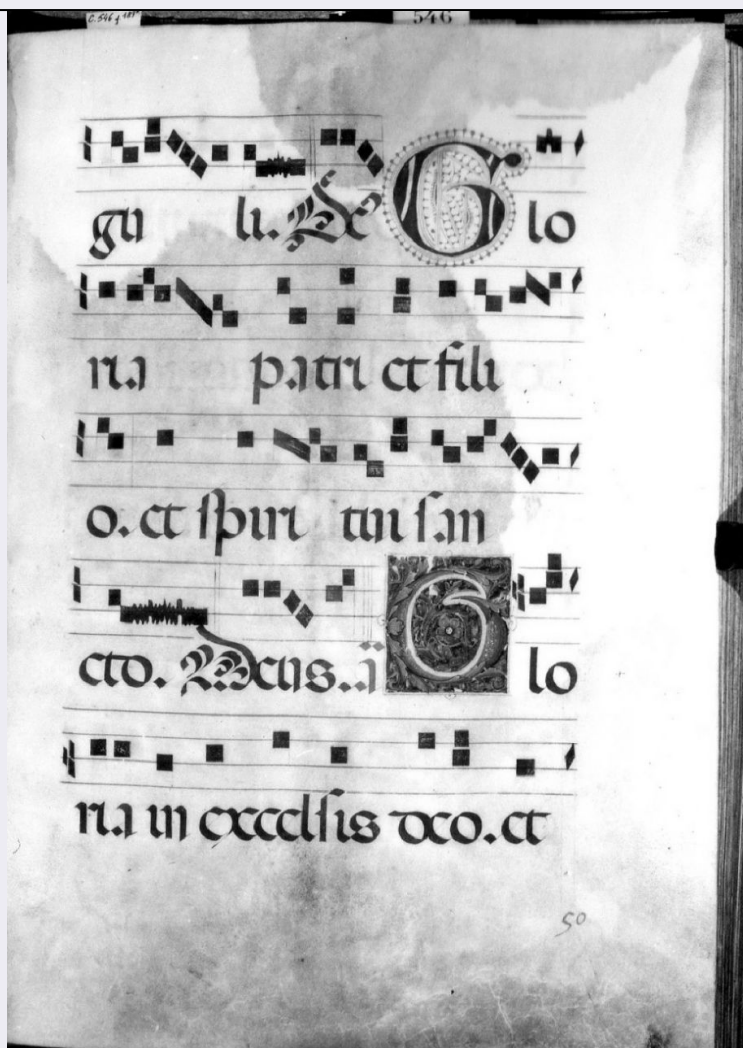 C. 546 f 181v
546
gu li. Ex Glo
ria patri et fili
o. et spiri tui san
cto. Deus. ā Glo
ria in excelsis deo. et
50